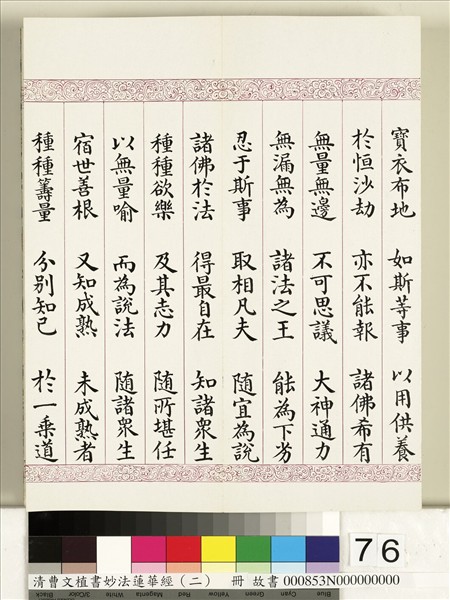 寶衣布地 如斯等事 以用供養
於恒沙劫 亦不能報 諸佛希有
無量無邊 不可思議 大神通力
無漏無為 諸法之王 能為下劣
忍于斯事 取相凡夫 隨宜為說
諸佛於法 得最自在 知諸眾生
種種欲樂 及其志力 隨所堪任
以無量喻 而為說法 隨諸眾生
宿世善根 又知成熟 未成熟者
種種籌量 分別知已 於一乘道
76
Black 3/Color White Magenta Red Yellow Green Cyan Blue
清曹文植書妙法蓮華經（二） 冊 故書 000853N000000000